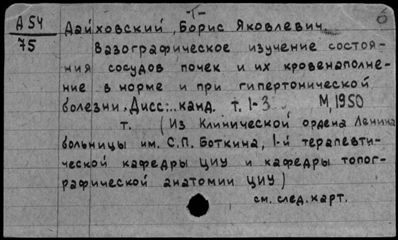 -I-
А 54
75
Дайховский, Борис Яковлевич.
Вазографическое изучение состоя-
ния сосудов почек и их кровенаполне-
ние в норме и при гипертонической
болезни. Дисс... канд. т. 1-3 М, 1950
т. (Из Клинической ордена Ленина
больницы им. С.П. Боткина, 1-й терапевти-
ческой кафедры ЦИУ и кафедры топог-
рафической анатомии ЦИУ)
см. след. карт.